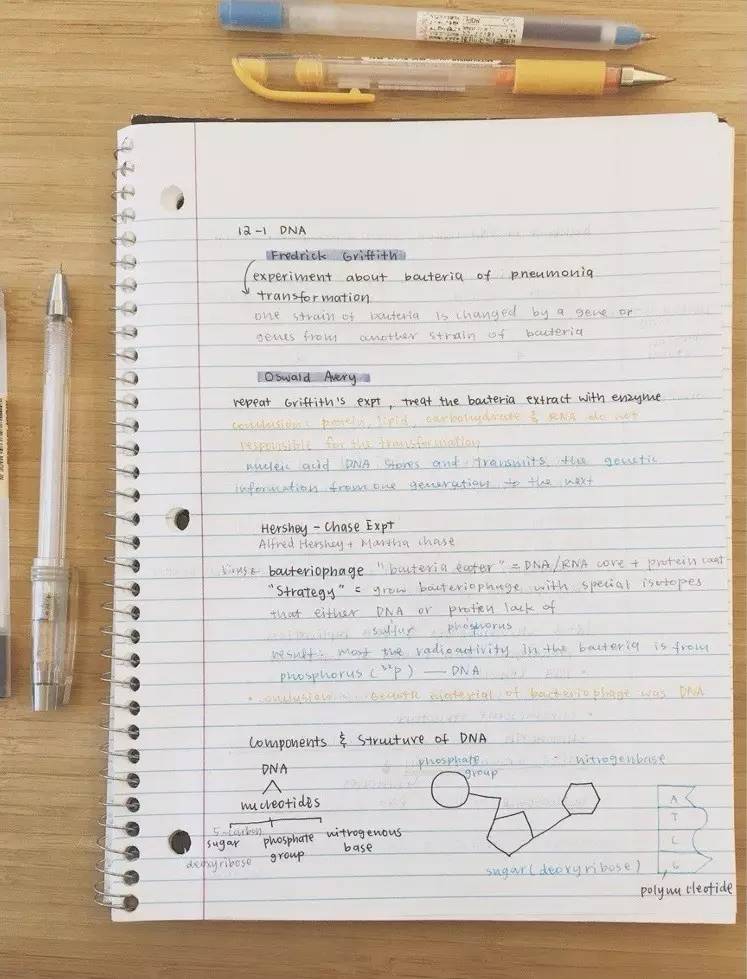 12-1 DNA
Fredrick Griffith
experiment about bacteria of pneumonia
transformation
one strain of bacteria is changed by a gene or
genes from another strain of bacteria
Oswald Avery
repeat Griffith's expt, treat the bacteria extract with enzyme
conclusion: protein, lipid, carbohydrate & RNA do not
responsible for the transformation
nucleic acid DNA stores and transmits the genetic
information from one generation to the next
Hershey - Chase Expt
Alfred Hershey + Martha Chase
virus bacteriophage "bacteria eater" = DNA/RNA core + protein coat
"Strategy" = grow bacteriophage with special isotopes
that either DNA or protien lack of
sulfur phosphorus
result: most the radioactivity in the bacteria is from
phosphorus (³²P) — DNA
conclusion: genetic material of bacteriophage was DNA
Components & Structure of DNA
DNA
nucleotides
5-carbon sugar phosphate group nitrogenous base
deoxyribose
phosphate group
nitrogenbase
sugar (deoxyribose)
A
T
C
G
polynucleotide